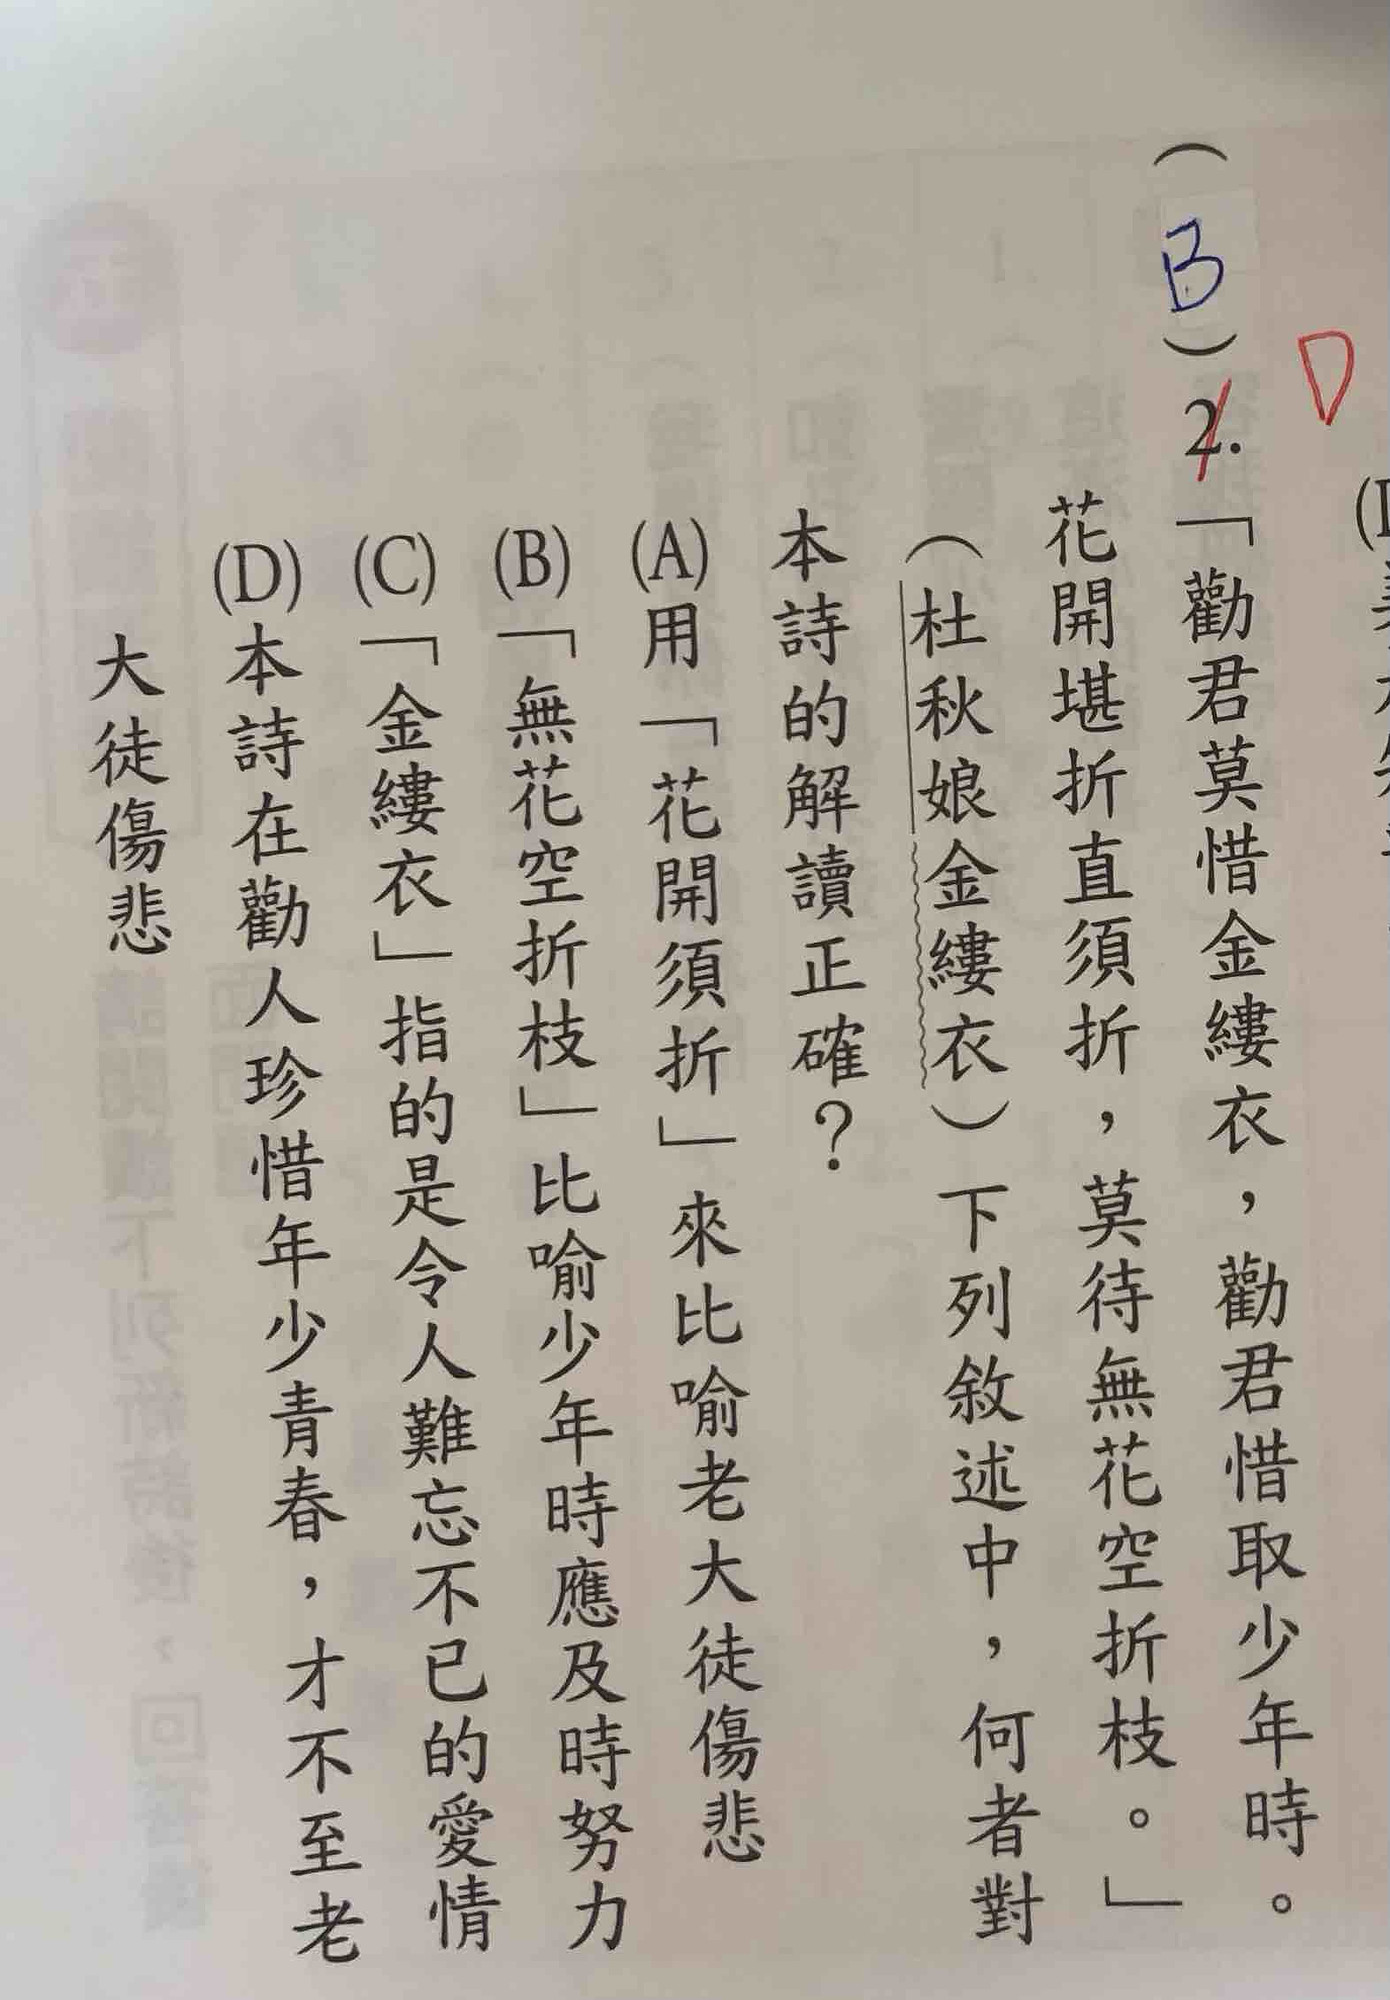 D
(B)2.「勸君莫惜金縷衣，勸君惜取少年時。
花開堪折直須折，莫待無花空折枝。」
（杜秋娘金縷衣）下列敘述中，何者對
本詩的解讀正確？
(A)用「花開須折」來比喻老大徒傷悲
(B)「無花空折枝」比喻少年時應及時努力
(C)「金縷衣」指的是令人難忘不已的愛情
(D)本詩在勸人珍惜年少青春，才不至老
大徒傷悲